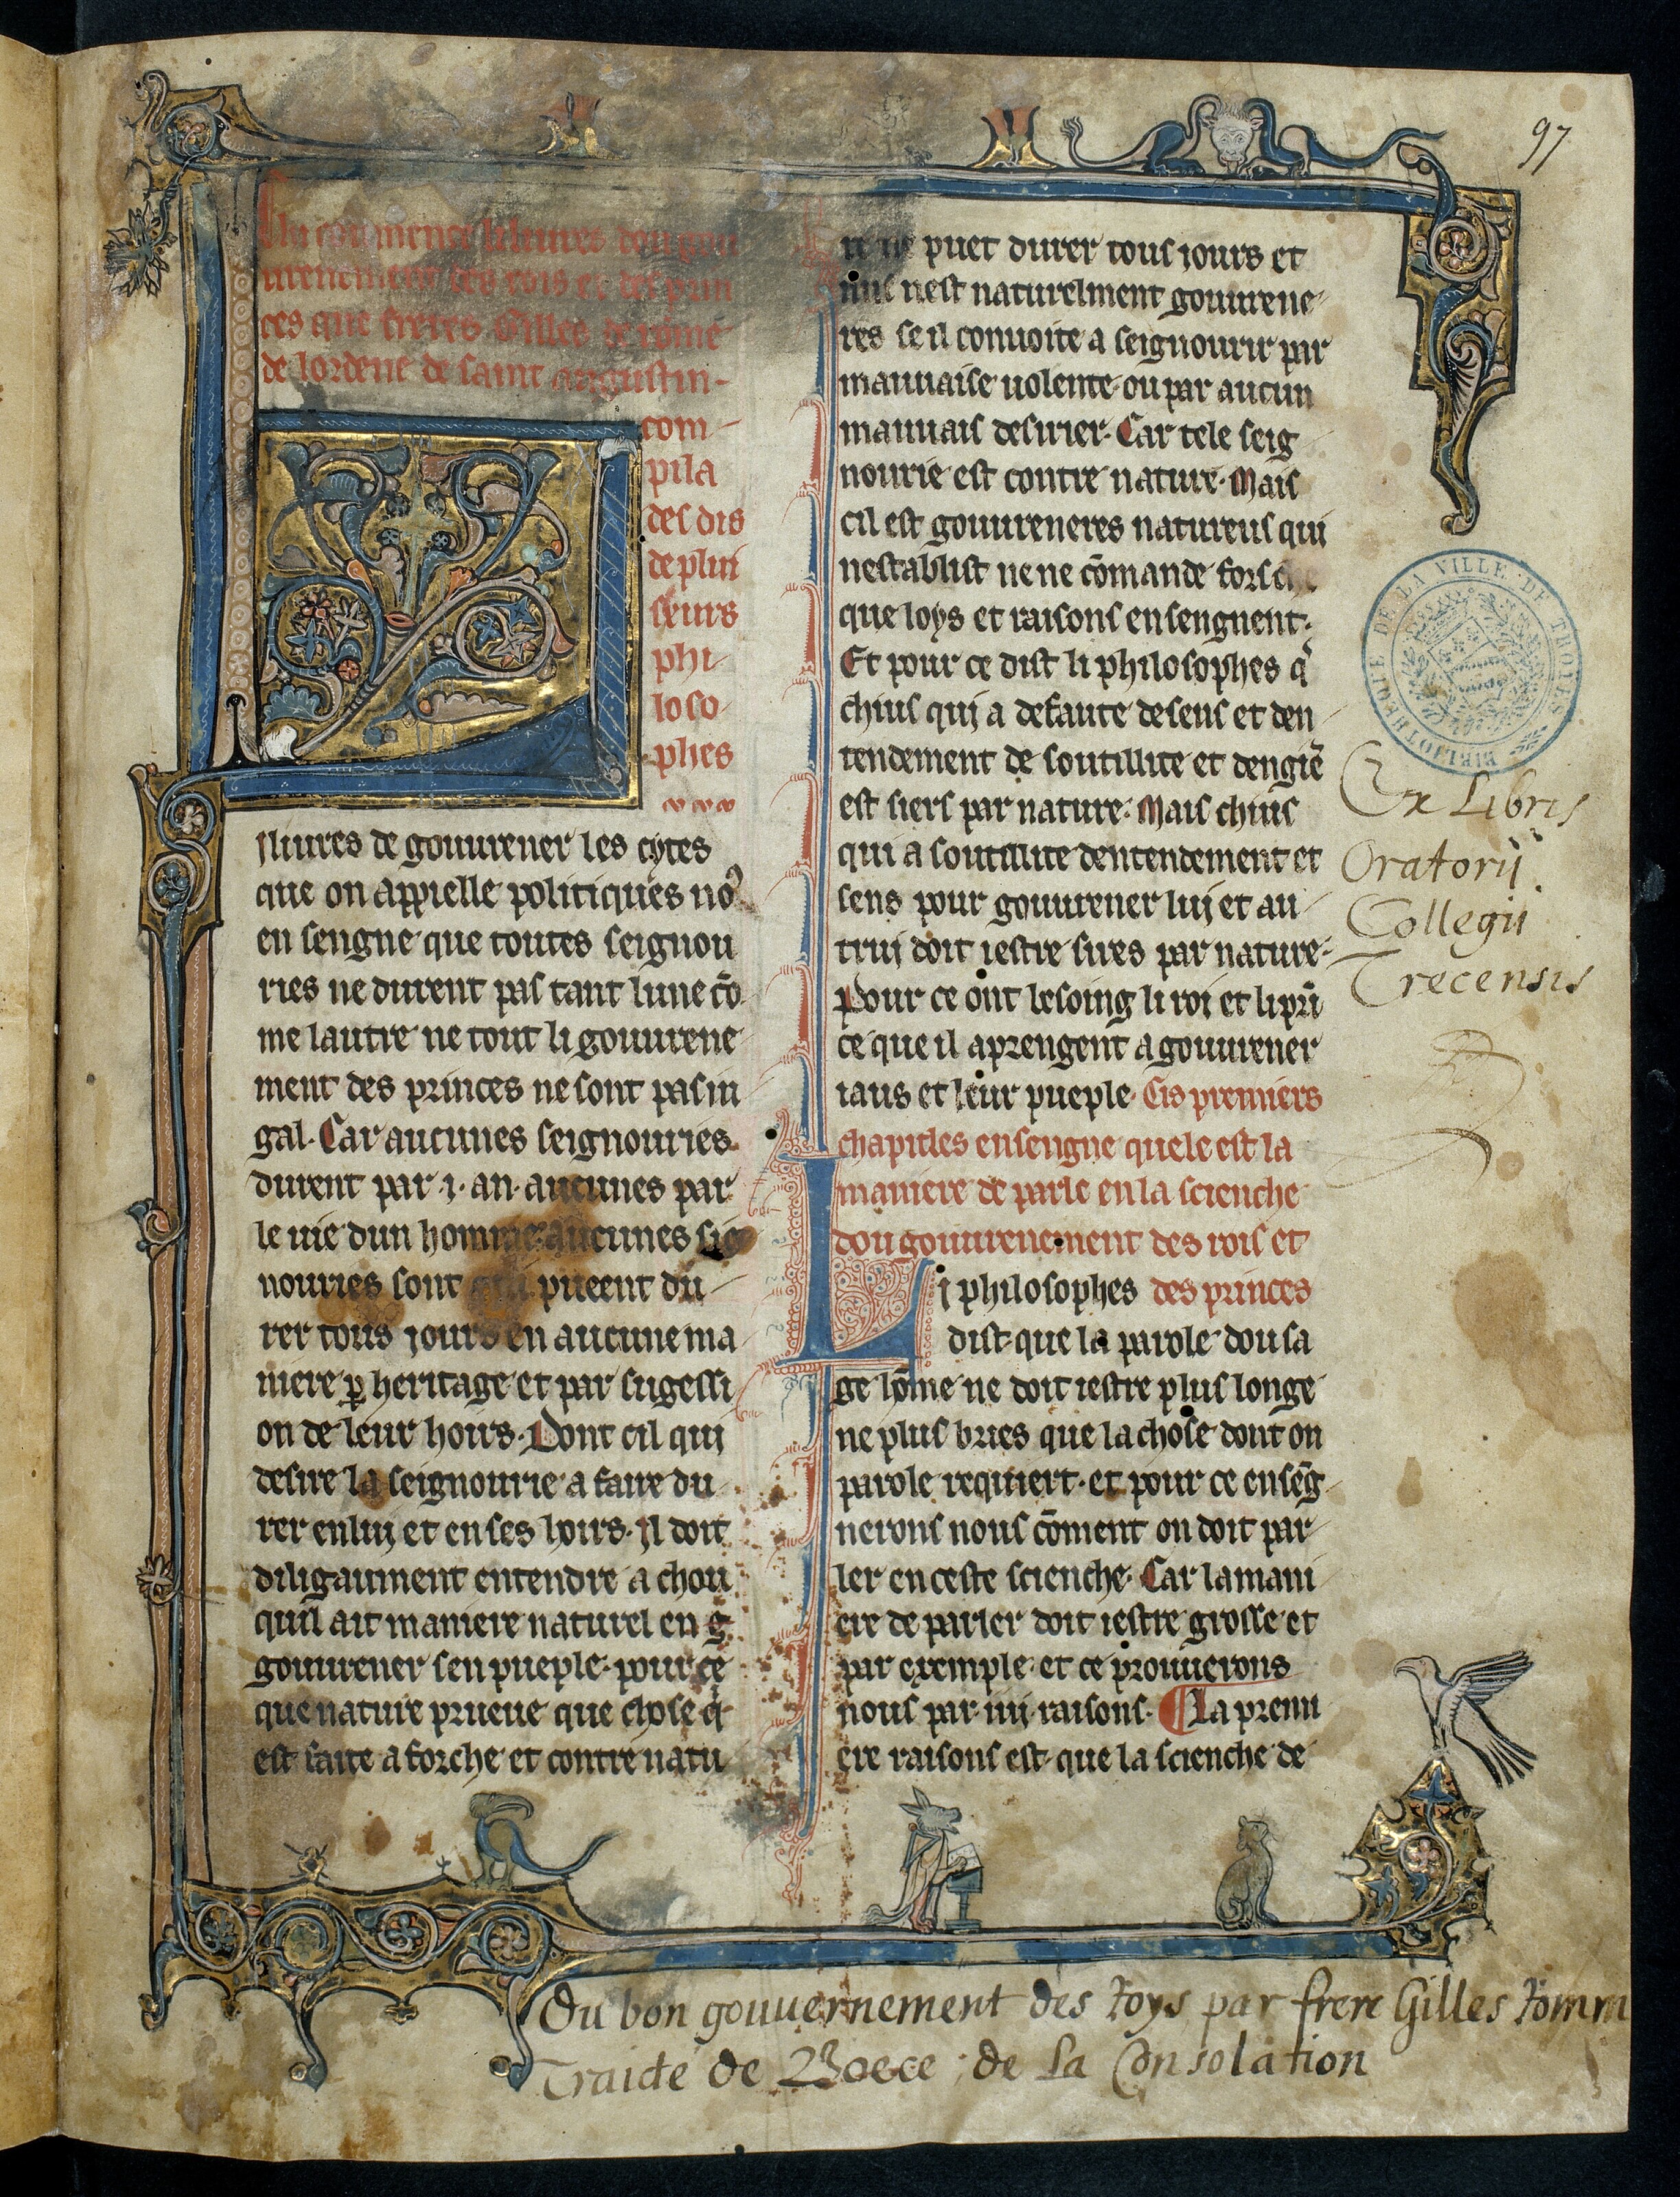 97
commence li livres dou gou
urenement des rois et des prin
ces que freres Gilles de rome
de lordene de saint augustin
com
pila
des dis
de pluı
seurs
phi
loso
phes
sliures de gouurener les cytes
que on appielle politiques no9
en sengne que toutes seignou
ries ne durent pas tant lune cō
me lautre ne tout li gouurene
ment des princes ne sont pas in
gal. Car aucunes seignouries
durent par .i. an. aucunes par
le uie dun homme. aucunes sig
nouries sont qui pueent du
rer tous jours en aucune ma
niere ꝑ heritage et par sugessi
on de leur hoirs. Dont cil qui
desire la seignourie a faire du
rer en luj et en ses hoirs. Il doit
diligaument entendre a chou
quil ait maniere naturel en g
gouurener sen pueple. pour ce
que nature prueue que chose q̇
est faite a forche et contre natu
re ne puet durer tous jours et
nus nest naturelment gouurene
res se il conuoite a seignourir par
mauuaise uolente. ou par aucun
mauuais desirier. Car tele seig
nourie est contre nature. Mais
cil est gouureneres natureus qui
nestablist ne ne cōmande fors che
que loys et raisons ensengnent.
Et pour ce dist li philosophes q̇
chius quj a defaute de sens et den
tendement de soutillite et dengiē
est siers par nature. Mais chius
qui a soutillite dentendement et
sens pour gouurener luj et au
truj doit iestre sires par nature.
Pour ce ont besoing li roi et li prī
ce que il aprengent a gouurener
iaus et leur pueple. Cis premiers
chapitles ensengne quele est la
maniere de parle en la scienche
dou gouurenement des rois et
Lj philosophes des princes
dist. que la parole dou sa
ge lōme ne doit iestre plus longe
ne plus bries que la chose dont on
parole requiert. et pour ce ensēg
nerons nous cōment on doit par
ler en ceste scienche. Car la mani
ere de parler doit iestre grosse et
par exemple. et ce prouuerons
nous par .iij. raisons. ¶ La premi
ere raisons est. que la scienche de
BIBLIOTHEQUE DE LA VILLE DE TROYES
Ex Libris
Oratorij
Collegii
Trecensis
Du bon gouuernement des Roys par frere Gilles Romm
Traide de Boece, de La Consolation